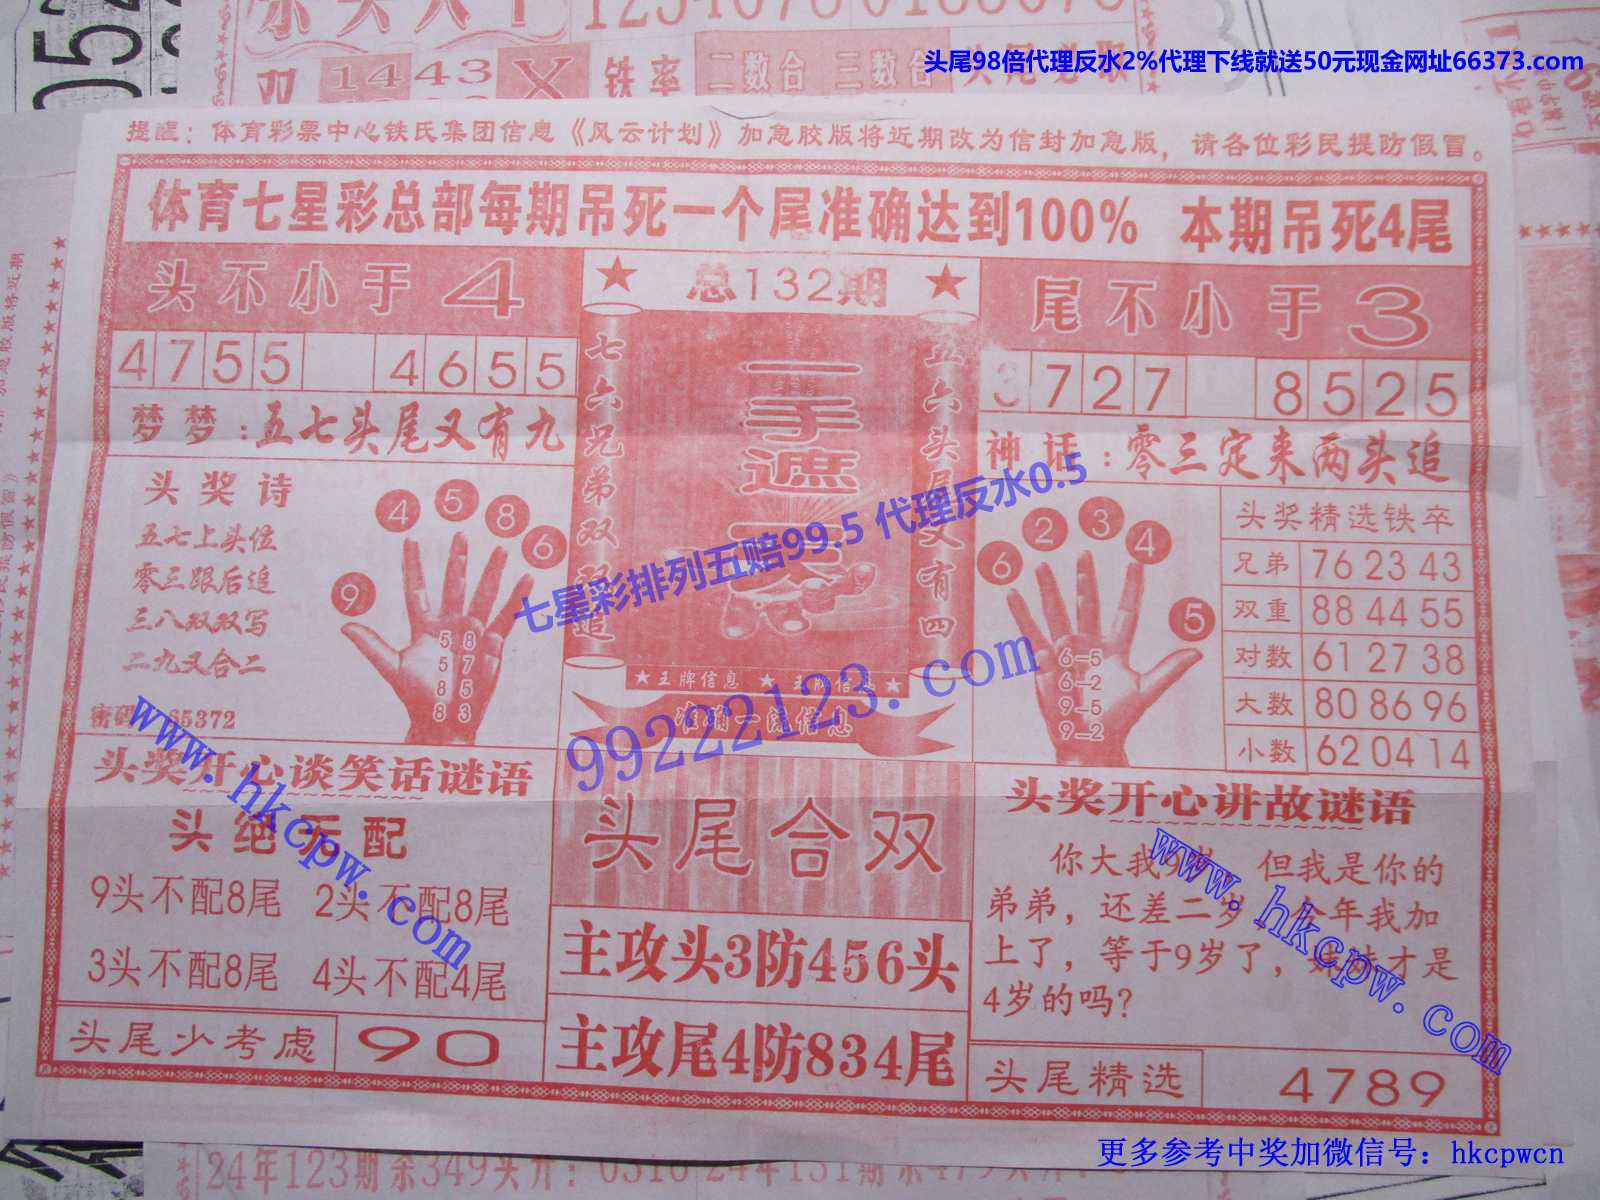 头尾98倍代理反水2%代理下线就送50元现金网址66373.com
二数合 三数合
1443
X
铁率
提醒：体育彩票中心铁氏集团信息《风云计划》加急胶版将近期改为信封加急版，请各位彩民提防假冒。
体育七星彩总部每期吊死一个尾准确达到100% 本期吊死4尾
头不小于4
★ 总132期 ★
尾不小于3
4755 4655
3727 8525
梦梦：五七头尾又有九
神话：零三定来两头追
七六兄弟双双追
一手遮天
五六头尾又有四
★王牌信息 ★ 王牌信息★
准确一流信息
头奖诗
五七上头位
零三跟后追
三八双双写
二九又合二
密码 65372
9 4 5 8 6
5 8
5 7
8 5
8 3
6 2 3 4 5
6-5
6-2
9-5
9-2
头奖精选铁卒
兄弟 76 23 43
双重 88 44 55
对数 61 27 38
大数 80 86 96
小数 62 04 14
七星彩排列五赔99.5 代理反水0.5
99222123.com
www.hkcpw.com
头奖开心谈笑话谜语
头绝无配
9头不配8尾 2头不配8尾
3头不配8尾 4头不配4尾
头尾少考虑 90
头尾合双
主攻头3防456头
主攻尾4防834尾
头奖开心讲故谜语
你大我9岁，但我是你的
弟弟，还差二岁，今年我加
上了，等于9岁了，妹妹才是
4岁的吗？
www.hkcpw.com
头尾精选 4789
更多参考中奖加微信号：hkcpwcn
24年123期余349头开：0316 24年131期